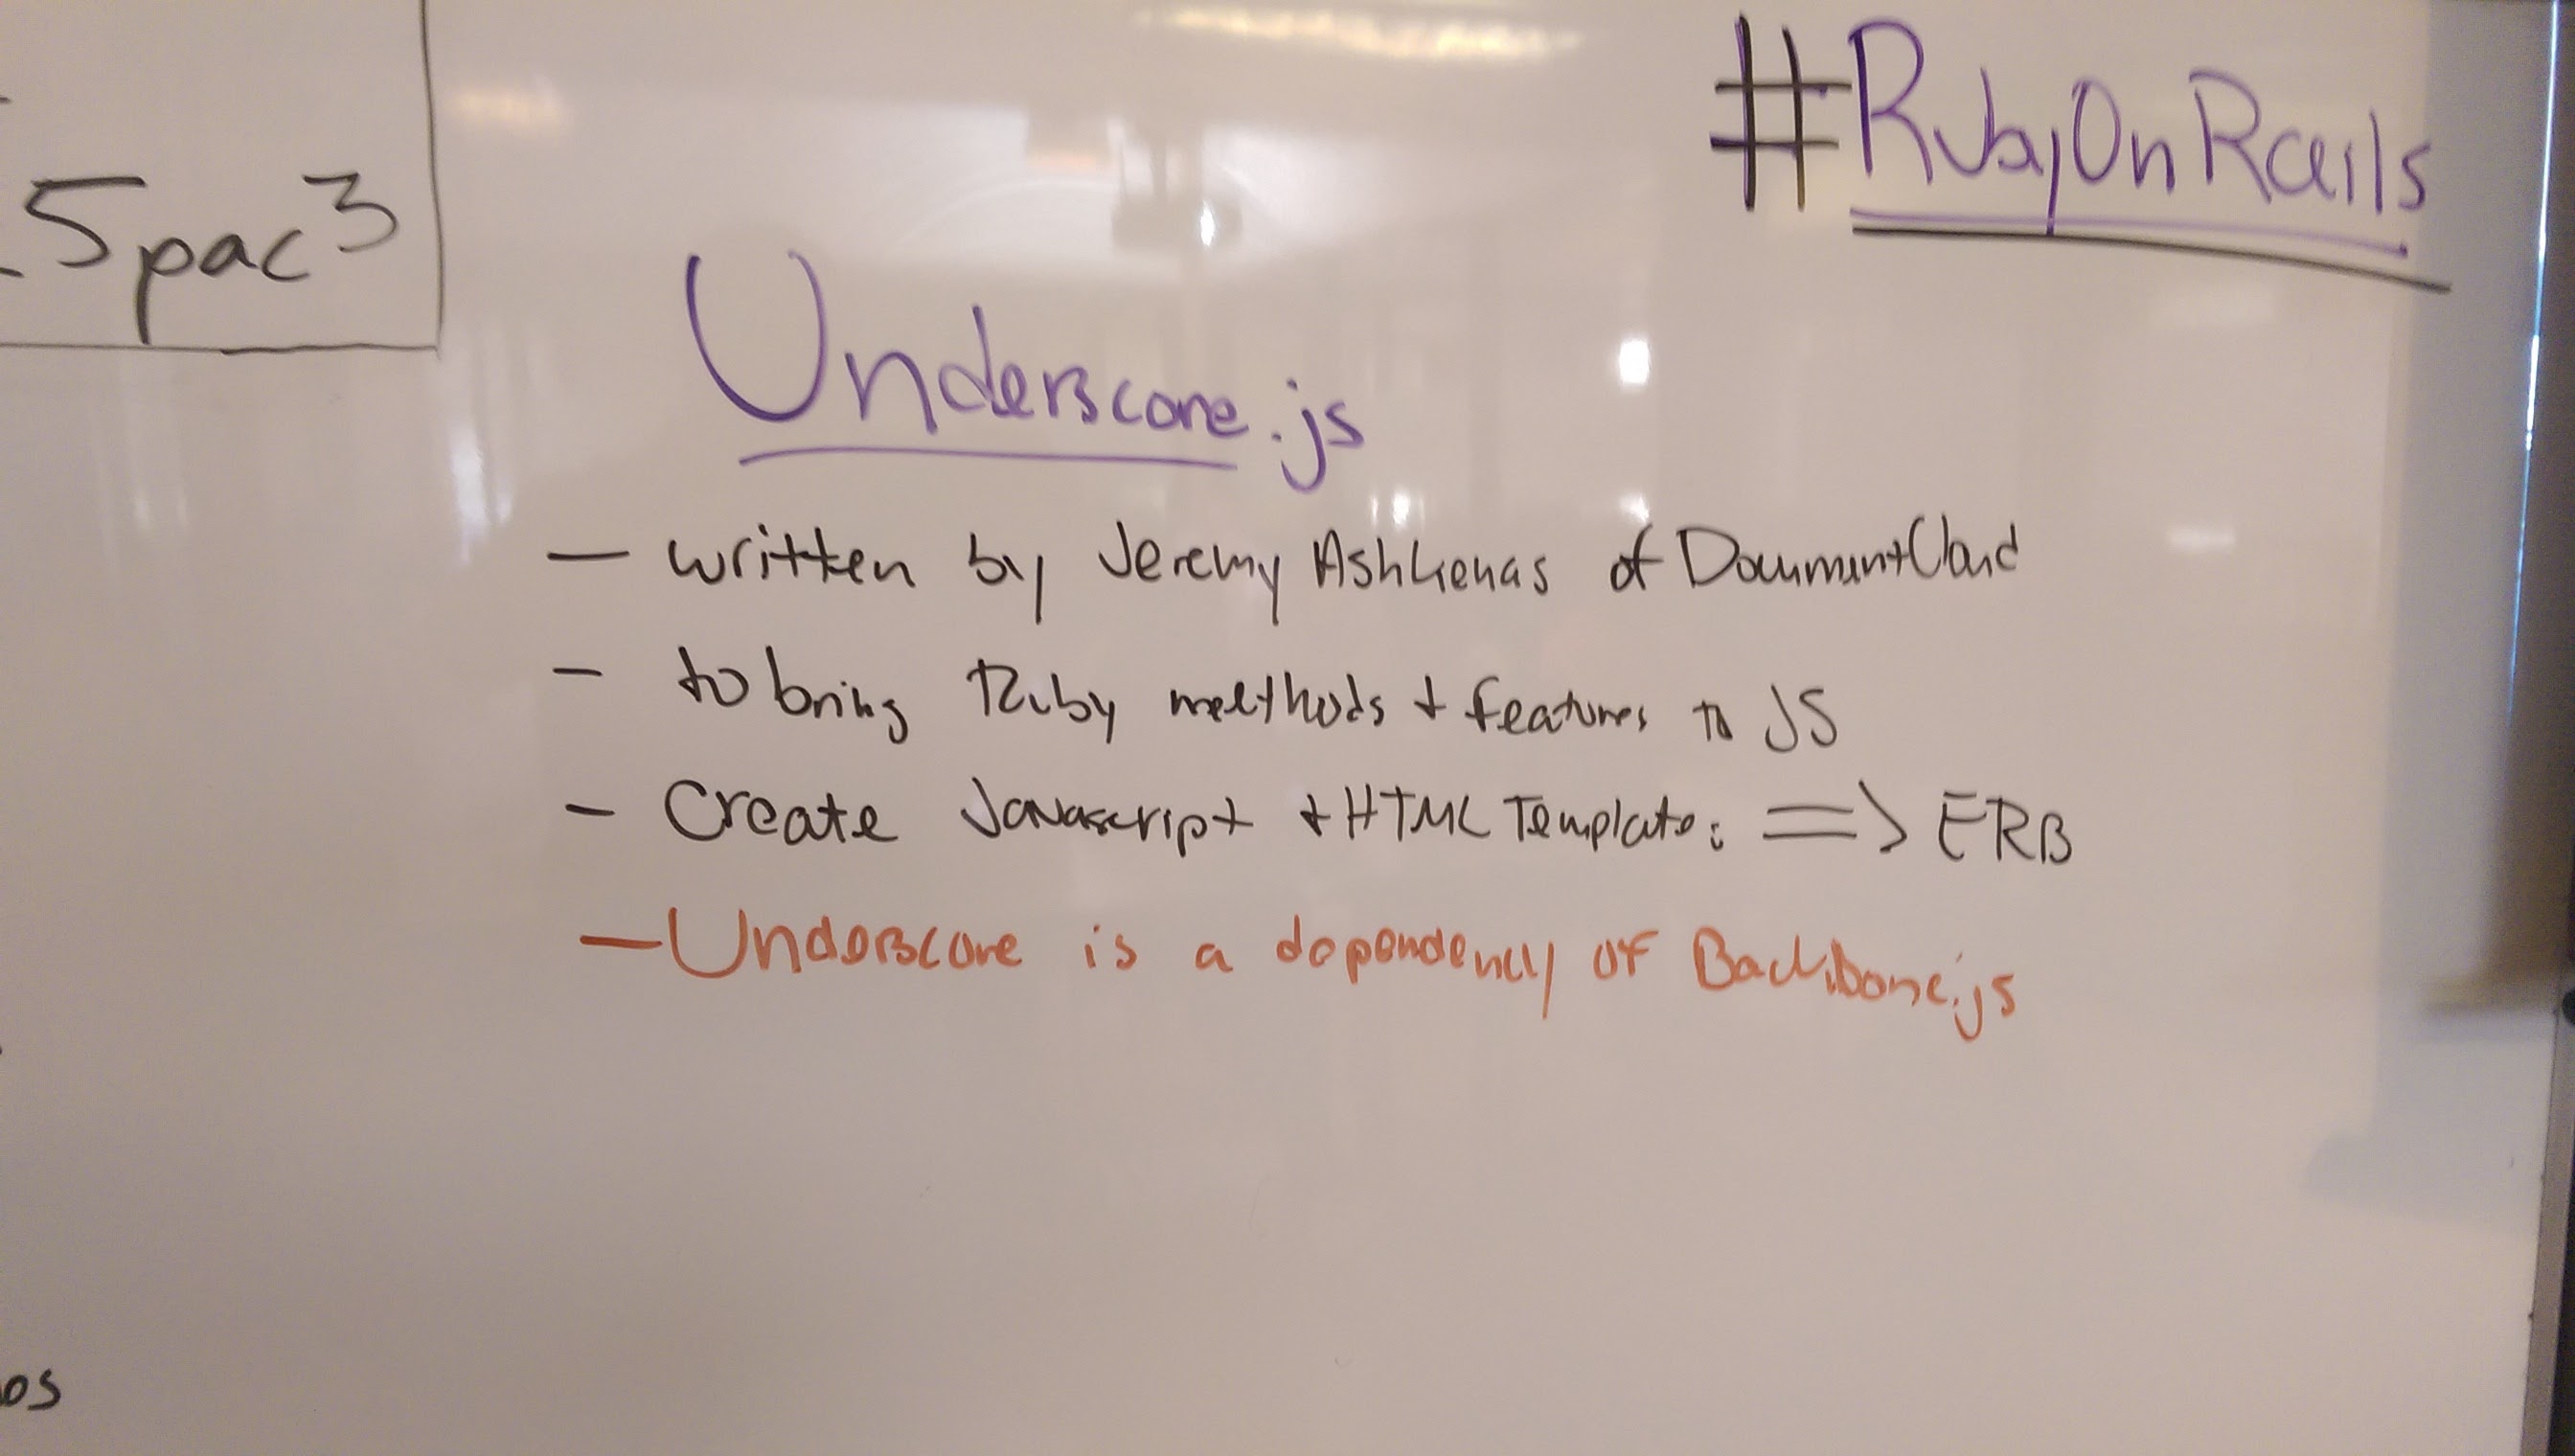 #RubyOnRails
5pac3
Underscore.js
— written by Jeremy Ashkenas of DocumentCloud
- to bring Ruby methods + features to JS
- Create Javascript + HTML Templates => ERB
— Underscore is a dependency of Backbone.js
os